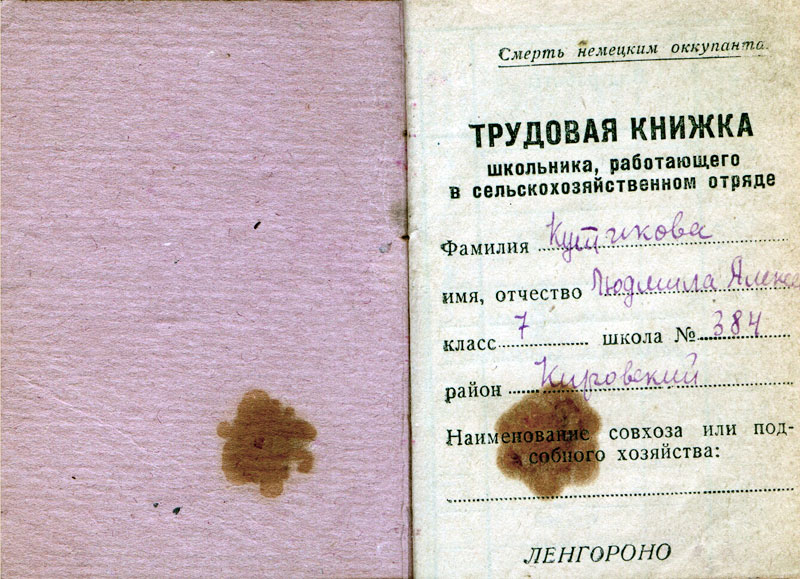 Смерть немецким оккупанта
ТРУДОВАЯ КНИЖКА
школьника, работающего
в сельскохозяйственном отряде
Фамилия Кутикова
имя, отчество Людмила Алекса
класс 7 школа № 384
район Кировский
Наименование совхоза или под-
собного хозяйства:
ЛЕНГОРОНО